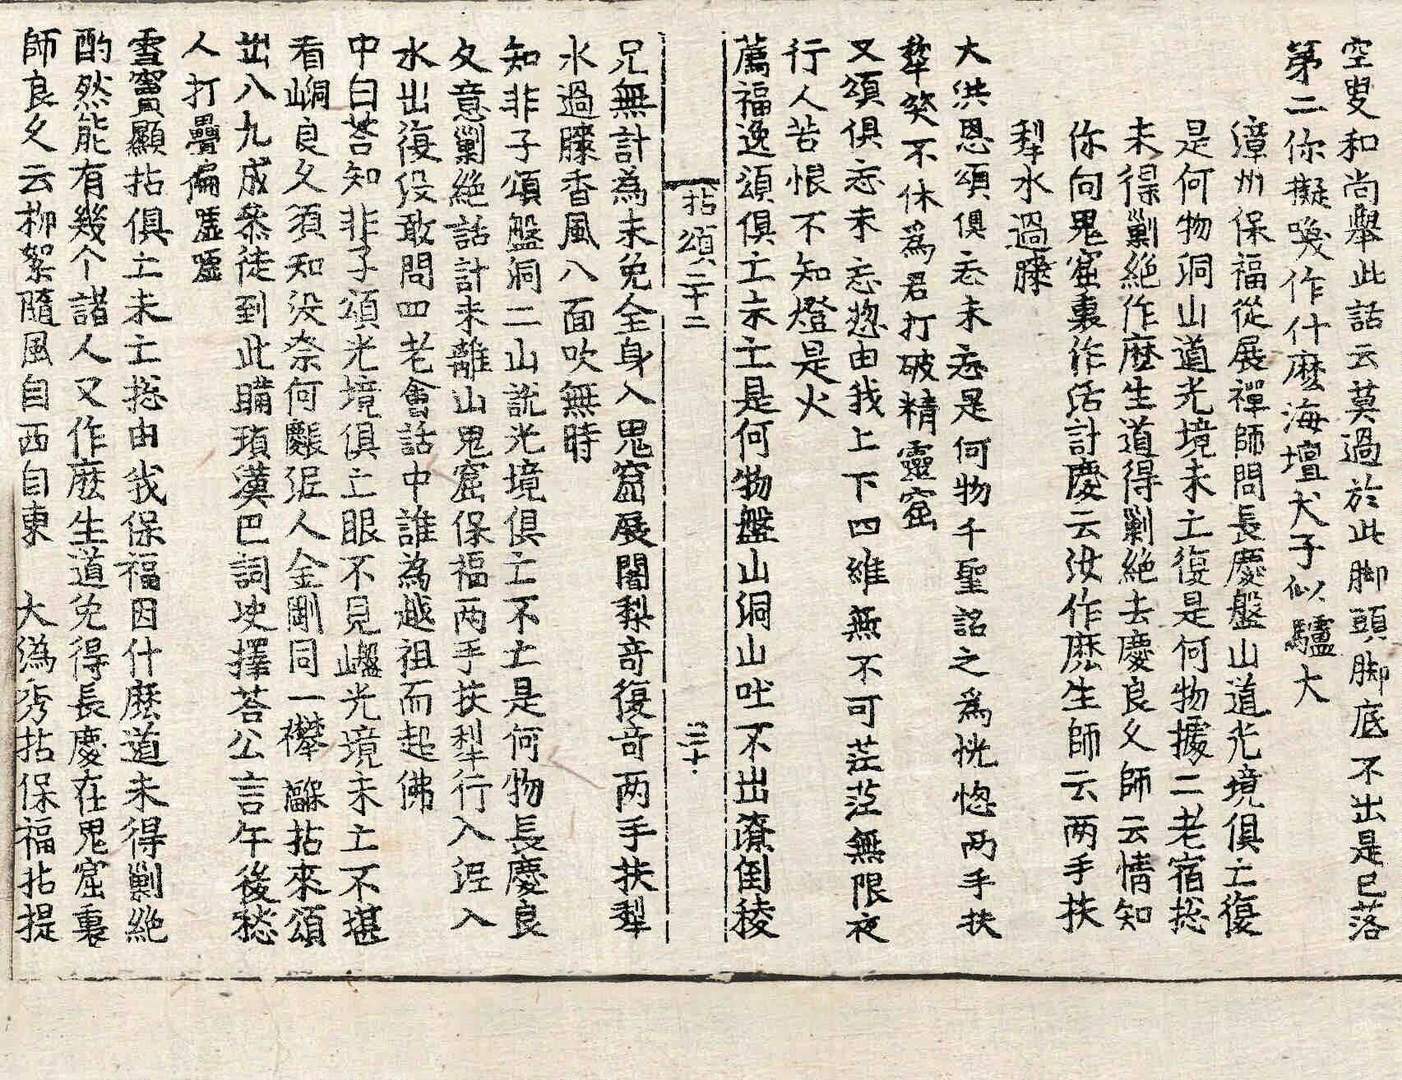 空叟和尚舉此話云莫過於此脚頭脚底不出是已落
第二你擬喚作什麽海壇犬子似驢大
漳州保福從展禪師問長慶盤山道光境俱亡復
是何物洞山道光境未亡復是何物據二老宿捴
未得勦絶作麽生道得勦絶去慶良久師云情知
你向鬼窟裏作活計慶云汝作麽生師云两手扶
犁水過膝
大洪恩頌俱忘未忘是何物千聖詔之爲恍惚两手扶
犂㳄不休爲君打破精靈窟
又頌俱忘未忘惣由我上下四維無不可茫茫無限夜
行人苦恨不知燈是火
薦福逸頌俱亡未亡是何物盤山洞山吐不出潦倒稜
拈頌二十二 三十
兄無計為未免全身入鬼窟展闍梨竒復竒两手扶犁
水過膝香風八面吹無時
知非子頌盤洞二山説光境俱亡不亡是何物長慶良
久意勦絶話計未離山鬼窟保福两手扶犁行入泥入
水出復没敢問四老會話中誰為越祖而起佛
中白荅知非子頌光境俱亡眼不見㠠光境未亡不堪
看峒良久須知没柰何囏泥人金剛同一㰖㔶拈來頌
出八九成叅徒到此瞞頇漢巴詞史擇荅公言午後愁
人打疊偏𡋯𡋯
雪竇顯拈俱亡未亡捴由我保福因什麽道未得勦絶
酌然能有幾个諸人又作麽生道免得長慶在鬼窟裏
師良久云柳絮隨風自西自東 大溈秀拈保福拈提